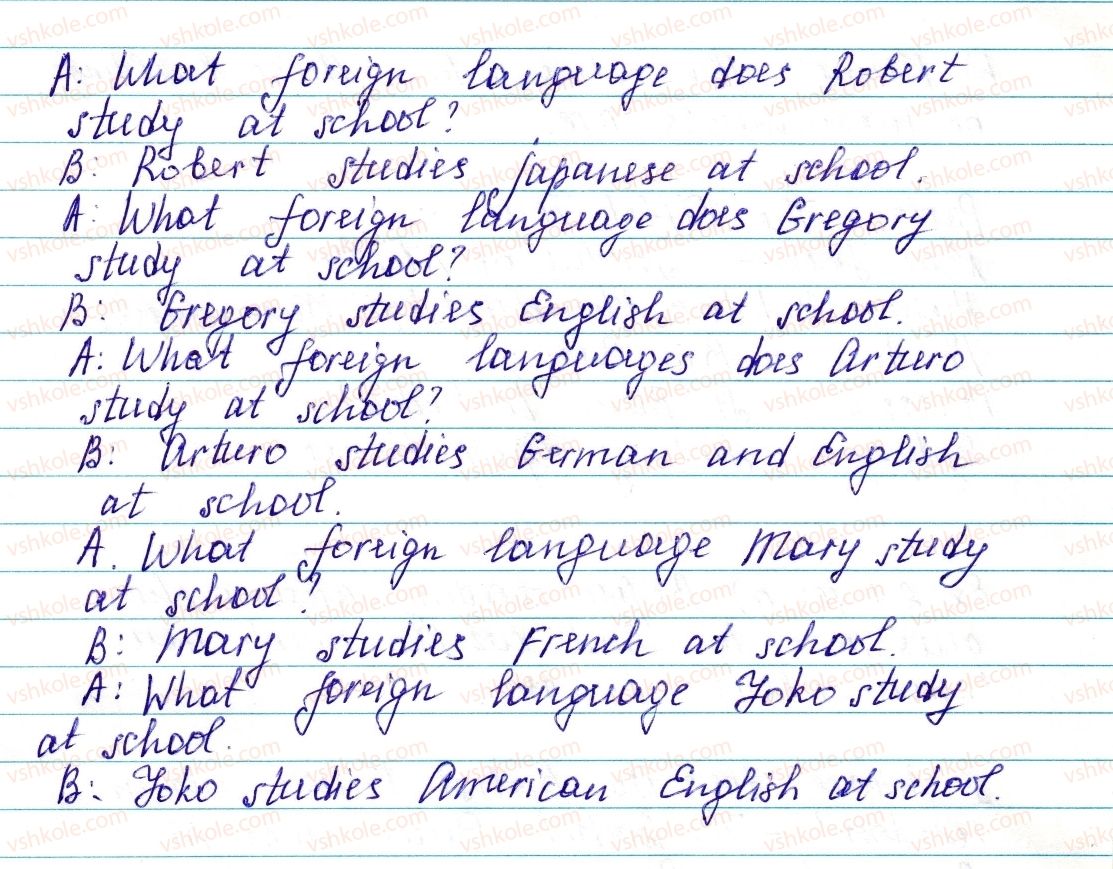 A: What foreign language does Robert
study at school?
B: Robert studies japanese at school.
A: What foreign language does Gregory
study at school?
B: Gregory studies English at school.
A: What foreign languages does Arturo
study at school?
B: Arturo studies German and English
at school.
A. What foreign language Mary study
at school?
B: Mary studies French at school.
A: What foreign language Yoko study
at school.
B: Yoko studies American English at school.